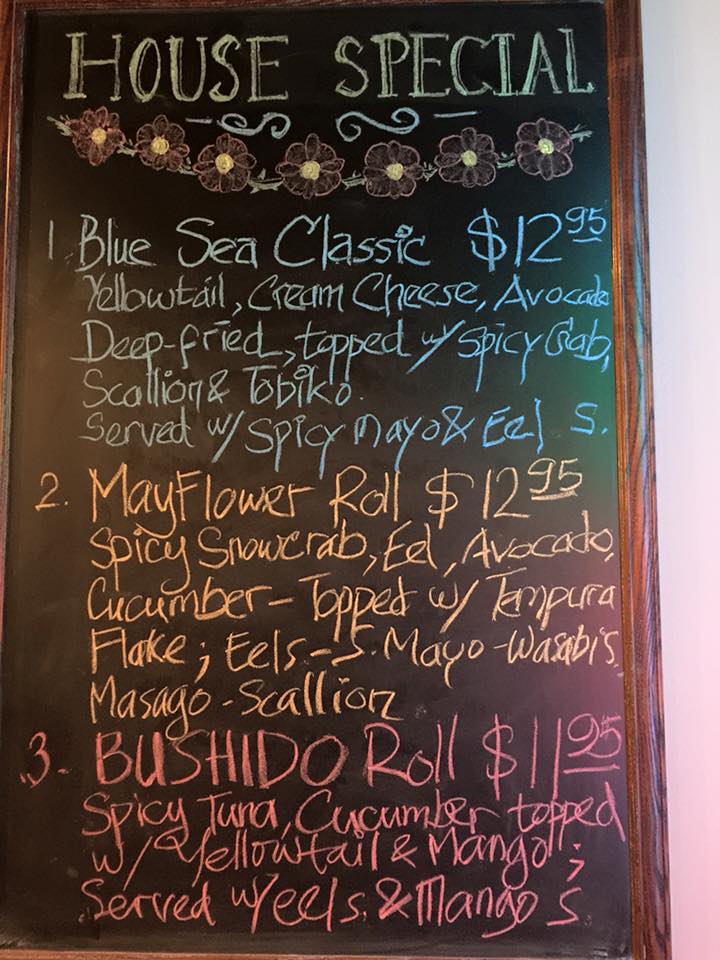 HOUSE SPECIAL
1. Blue Sea Classic $12 95
Yellowtail, Cream Cheese, Avocado
Deep-fried, topped w/ Spicy Crab,
Scallion & Tobiko.
Served w/ Spicy Mayo & Eel S.
2. MayFlower Roll $12 95
Spicy Snowcrab, Eel, Avocado,
Cucumber - Topped w/ Tempura
Flake ; Eels - S. Mayo - Wasabi S.
Masago - Scallion
3. BUSHIDO Roll $11 95
Spicy Tuna, Cucumber topped
w/ Yellowtail & Mango ;
Served w/ eel s. & Mango S